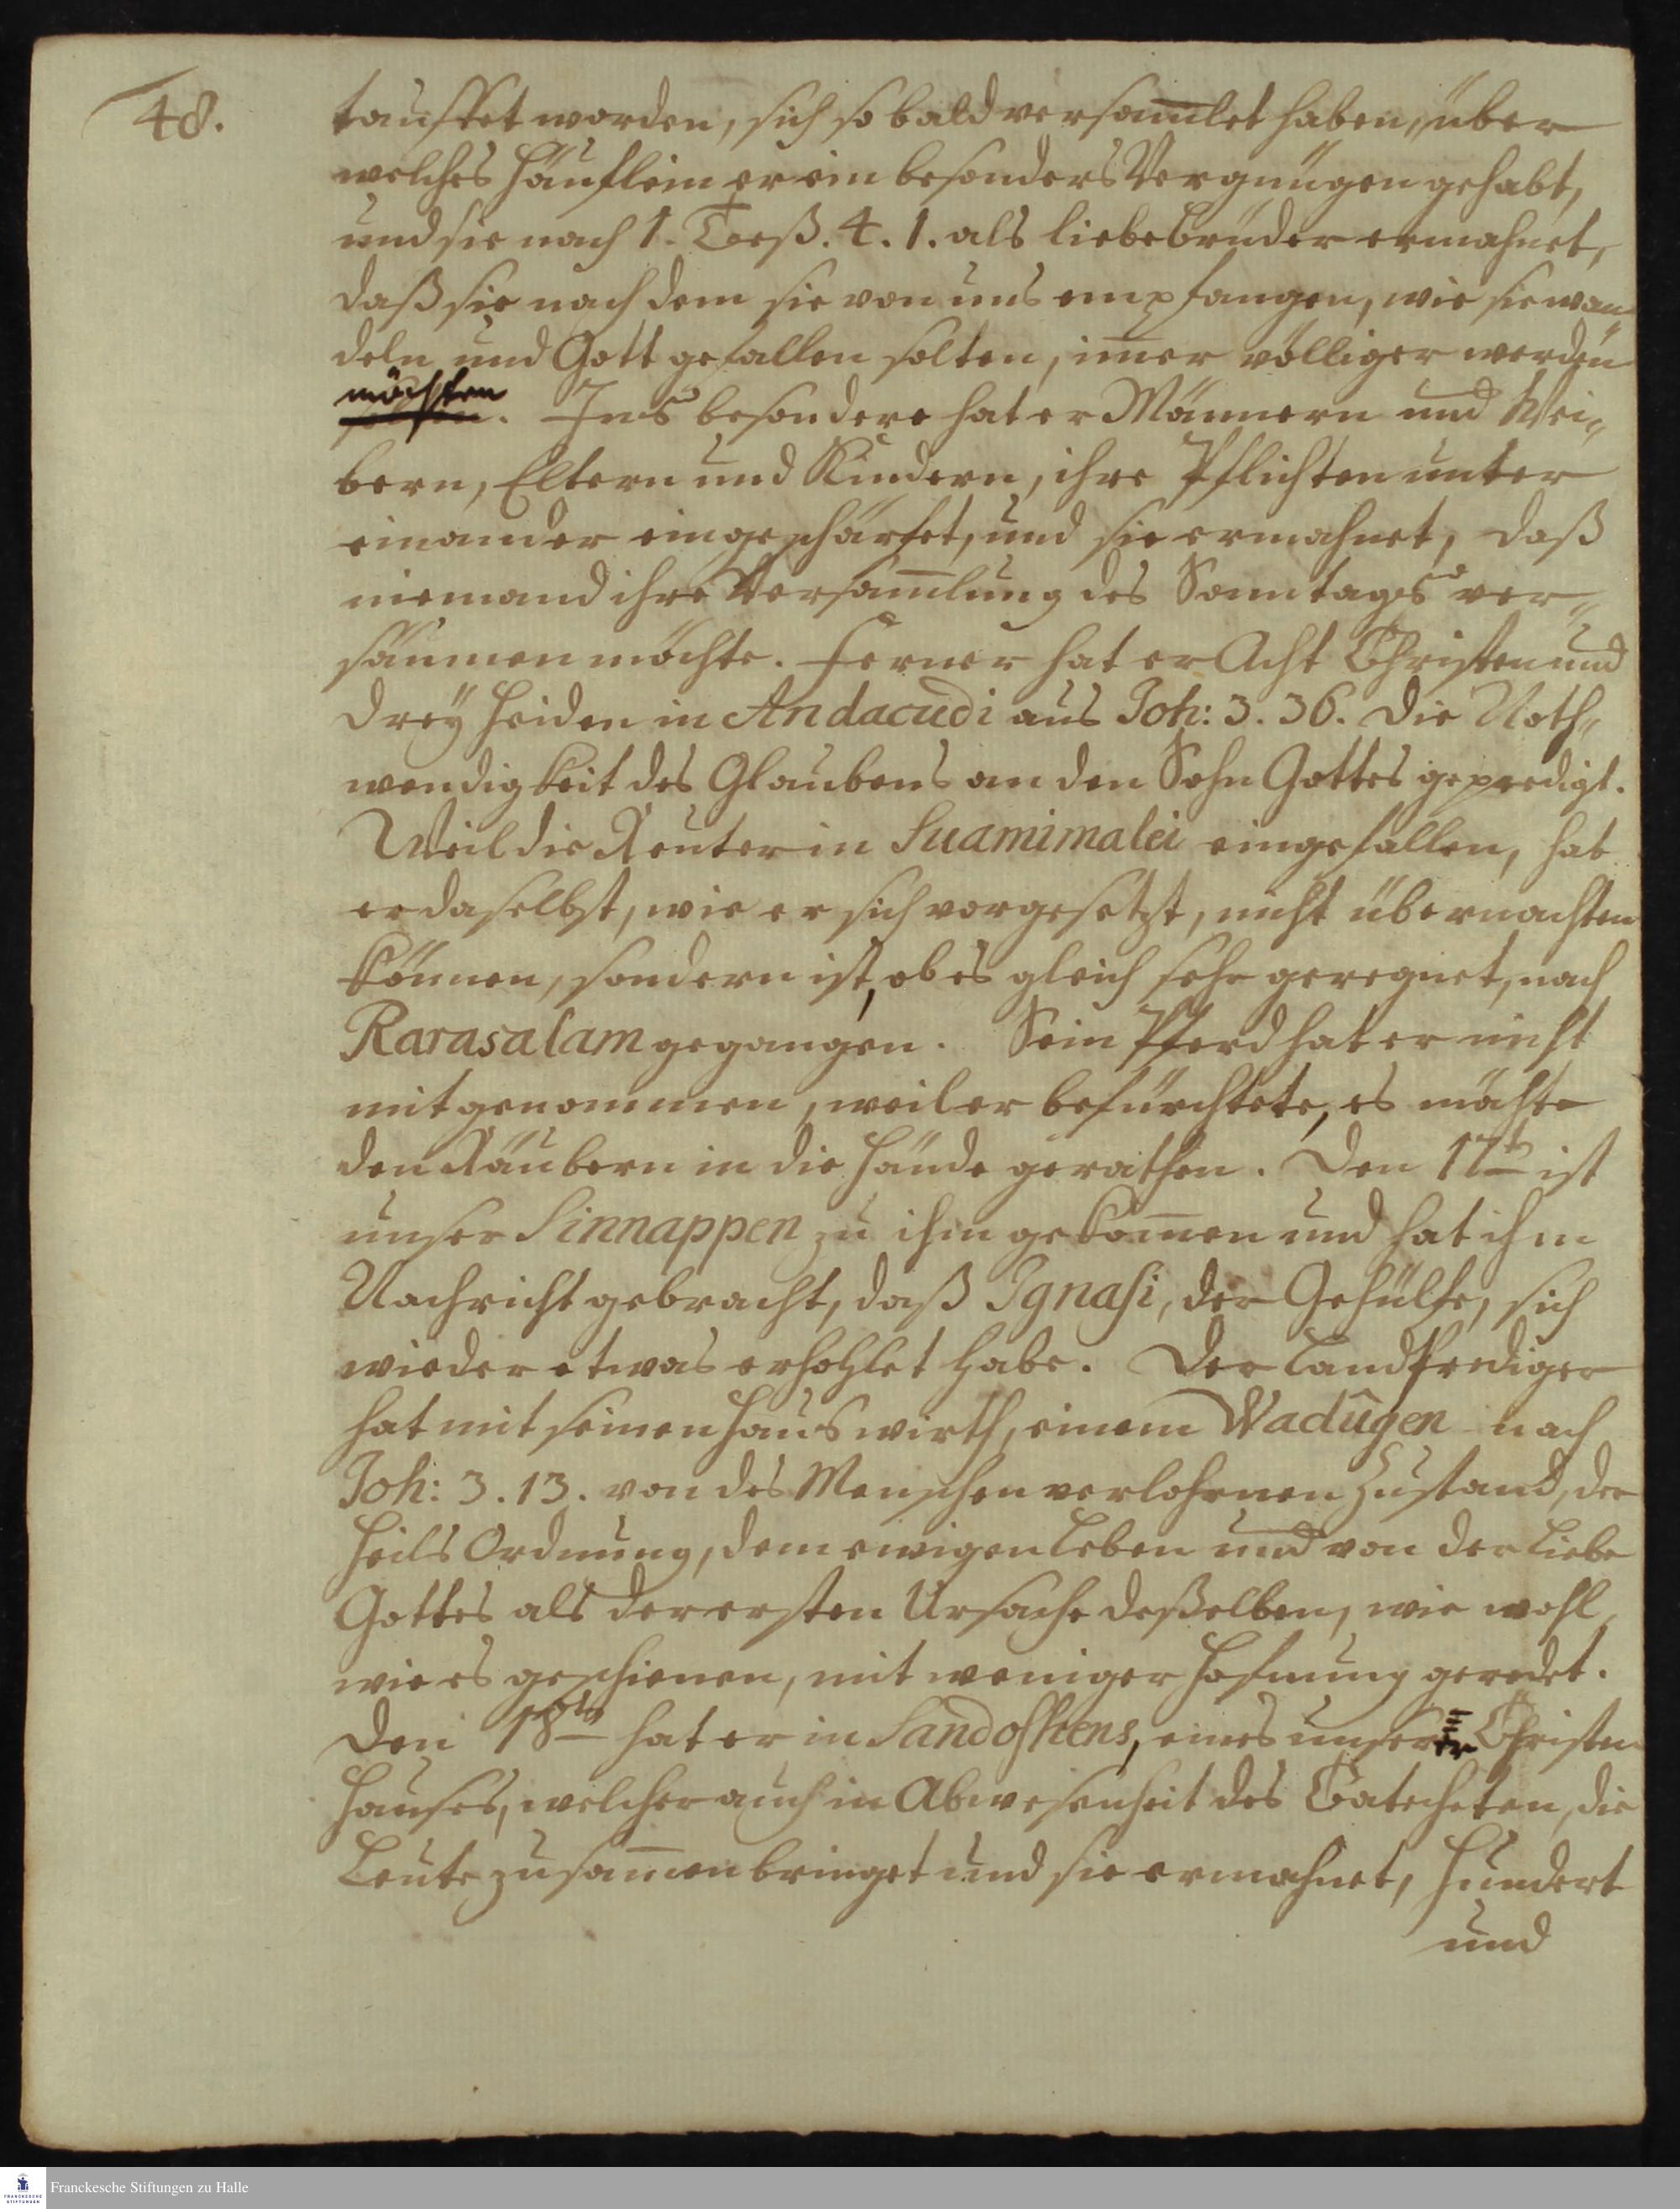 48.
tauffet worden, sich so bald versam̅let haben, über
welches Häuflein er ein besonders Vergnügen gehabt,
und sie nach 1. Teß. 4. 1. als liebe Brüder ermahnet,
daß sie nach dem sie von uns empfangen, wie sie wan
deln und Gott gefallen solten, im̅er völliger werden
möchten
solten. Ins besondere hat er Männern und Wei„
bern, Eltern und Kindern, ihre Pflichten unter
einander eingeschärfet, und sie ermahnet, daß
niemand ihre Versam̅lung des Sonntages ver„
säumen möchte. Ferner hat er Acht Christen und
drey Heiden in Andacudi aus Joh: 3. 36. die Noth„
wendigkeit des Glaubens an den Sohn Gottes geprediget.
Weil die Reuter in Suamimalei eingefallen, hat
er daselbst, wie er sich vorgesetzt, nicht übernachten
können, sondern ist, ob es gleich sehr geregnet, nach
Rarasalam gegangen. Sein Pferd hat er nicht
mit genommen, weil er befürchtete, es möchte
den Räubern in die Hände gerathen. Den 17t ist
unser Sinnappen zu ihm gekom̅en und hat ihm
Nachricht gebracht, daß Ignasi, der Gehülfe, sich
wieder etwas erhohlet habe. Der Landprediger
hat mit seinen Hauswirth, einem Wadûgen nach
Joh: 3. 13. von des Menschen verlohrnen Zustand, der
Heils Ordnung, dem ewigen Leben und von der Liebe
Gottes als der ersten Ursache deßelben, wie wohl,
wie es geschienen, mit weniger Hofnung geredet.
Den 18ten hat er in Sandoshens, eines unserer Christen
Hauses, welcher auch in Abwesenheit des Catecheten, die
Leute zusam̅en bringet und sie ermahnet, Hundert
und
Franckesche Stiftungen zu Halle
FRANCKESCHE
STIFTUNGEN